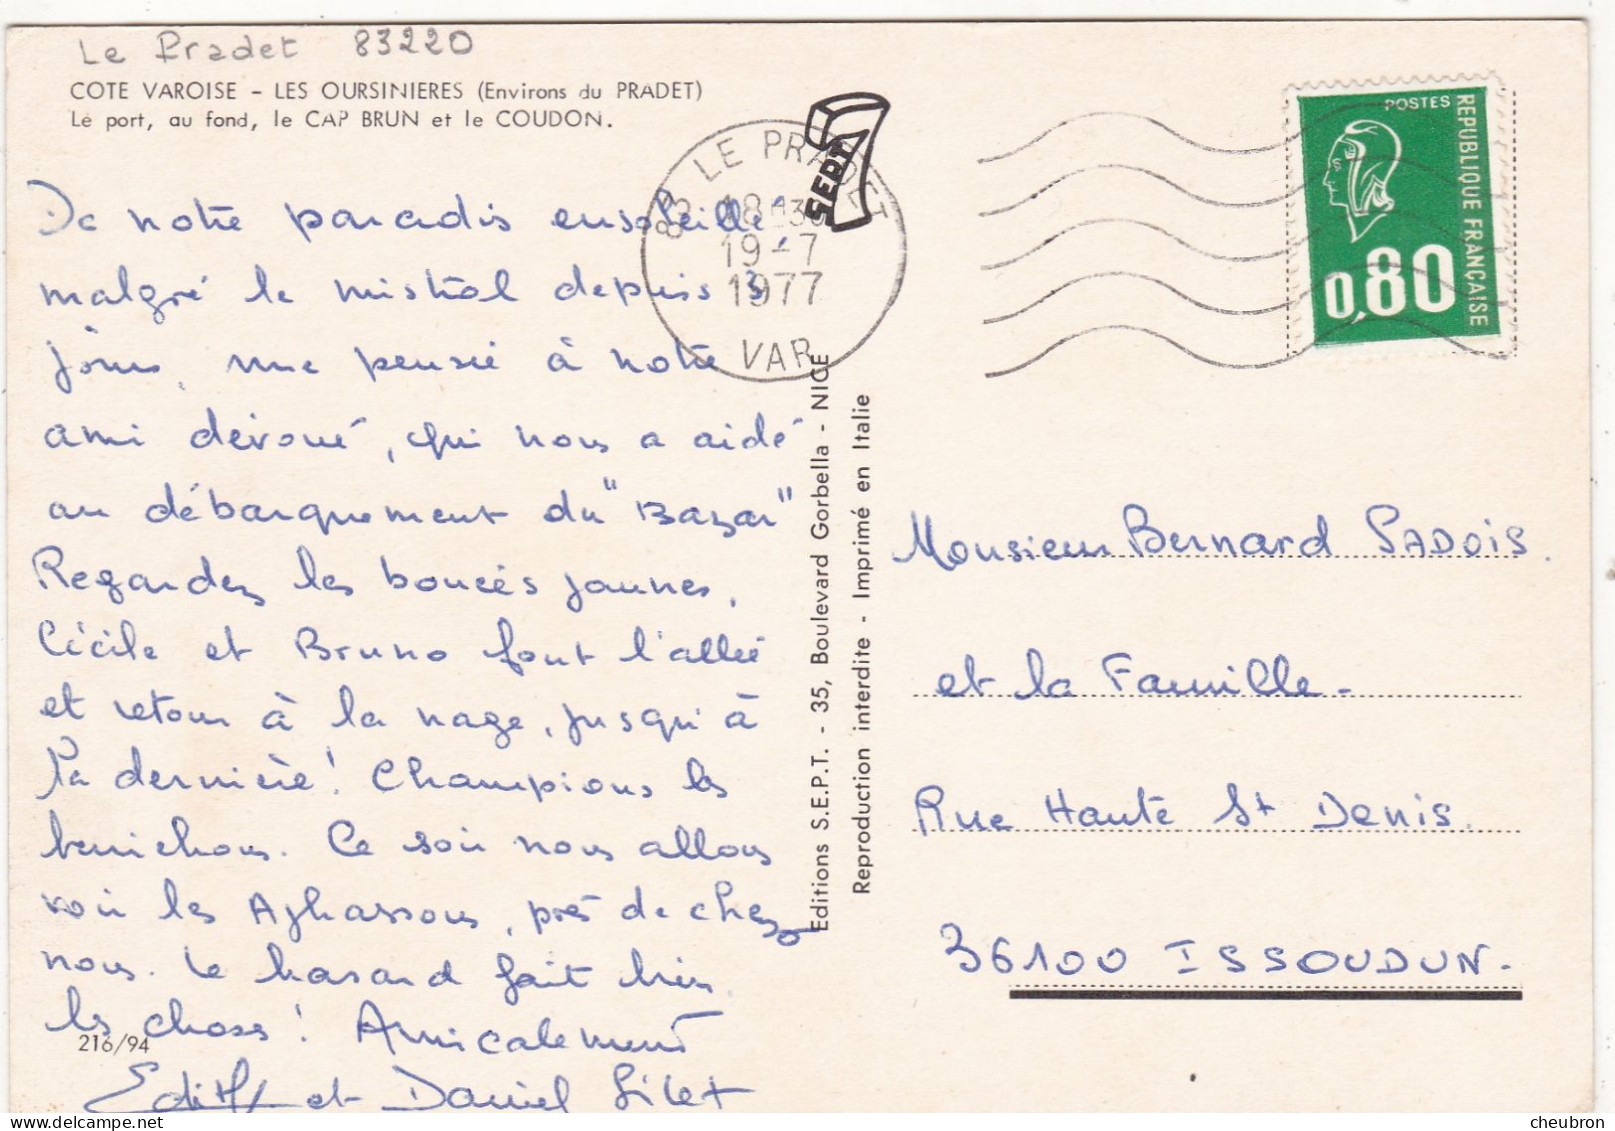 Le Pradet 83220
COTE VAROISE - LES OURSINIERES (Environs du PRADET)
Le port, au fond, le CAP BRUN et le COUDON.
De notre paradis ensoleillé,
malgré le mistral depuis 3
jours, une pensée à notre
ami dévoué, qui nous a aidé
au débarquement du "Bazar"
Regardez les bouées jaunes,
Cécile et Bruno font l'allée
et retour à la nage, jusqu'à
la dernière! Champions les
. Ce soir nous allons
voir les, près de chez
nous. Le hasard fait bien
les choses! Amicalement
Edith et Daniel Gilet
216/94
83 LE PRADET
18H30
19-7
1977
VAR
SEPT
Editions S.E.P.T. - 35, Boulevard Gorbella - NICE
Reproduction interdite - Imprimé en Italie
POSTES
REPUBLIQUE FRANÇAISE
0,80
Monsieur Bernard SADOIS.
et la Famille.
Rue Haute St Denis.
36100 ISSOUDUN.
cheubron.com